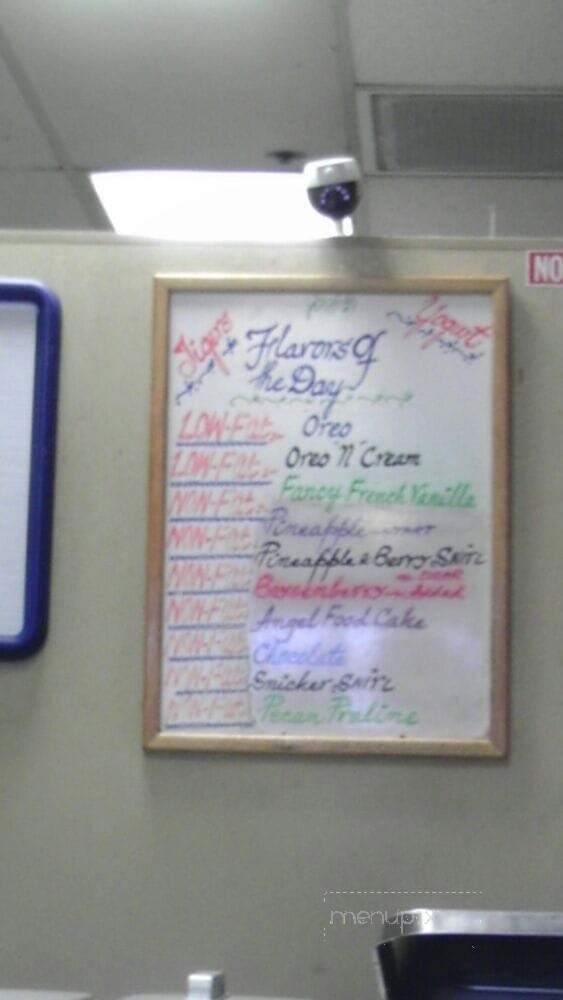 Tigers
Yogurt
Flavors of
the Day
LOW-Fat Oreo
LOW-Fat Oreo 'N' Cream
NON-Fat Fancy French Vanilla
NON-Fat Pineapple
NON-Fat Pineapple & Berry SWirL
NON-Fat Boysenberry no sugar added
NON-Fat Angel Food Cake
NON-Fat Chocolate
NON-Fat Snicker SWirL
NON-Fat Pecan Praline
NO
menupix